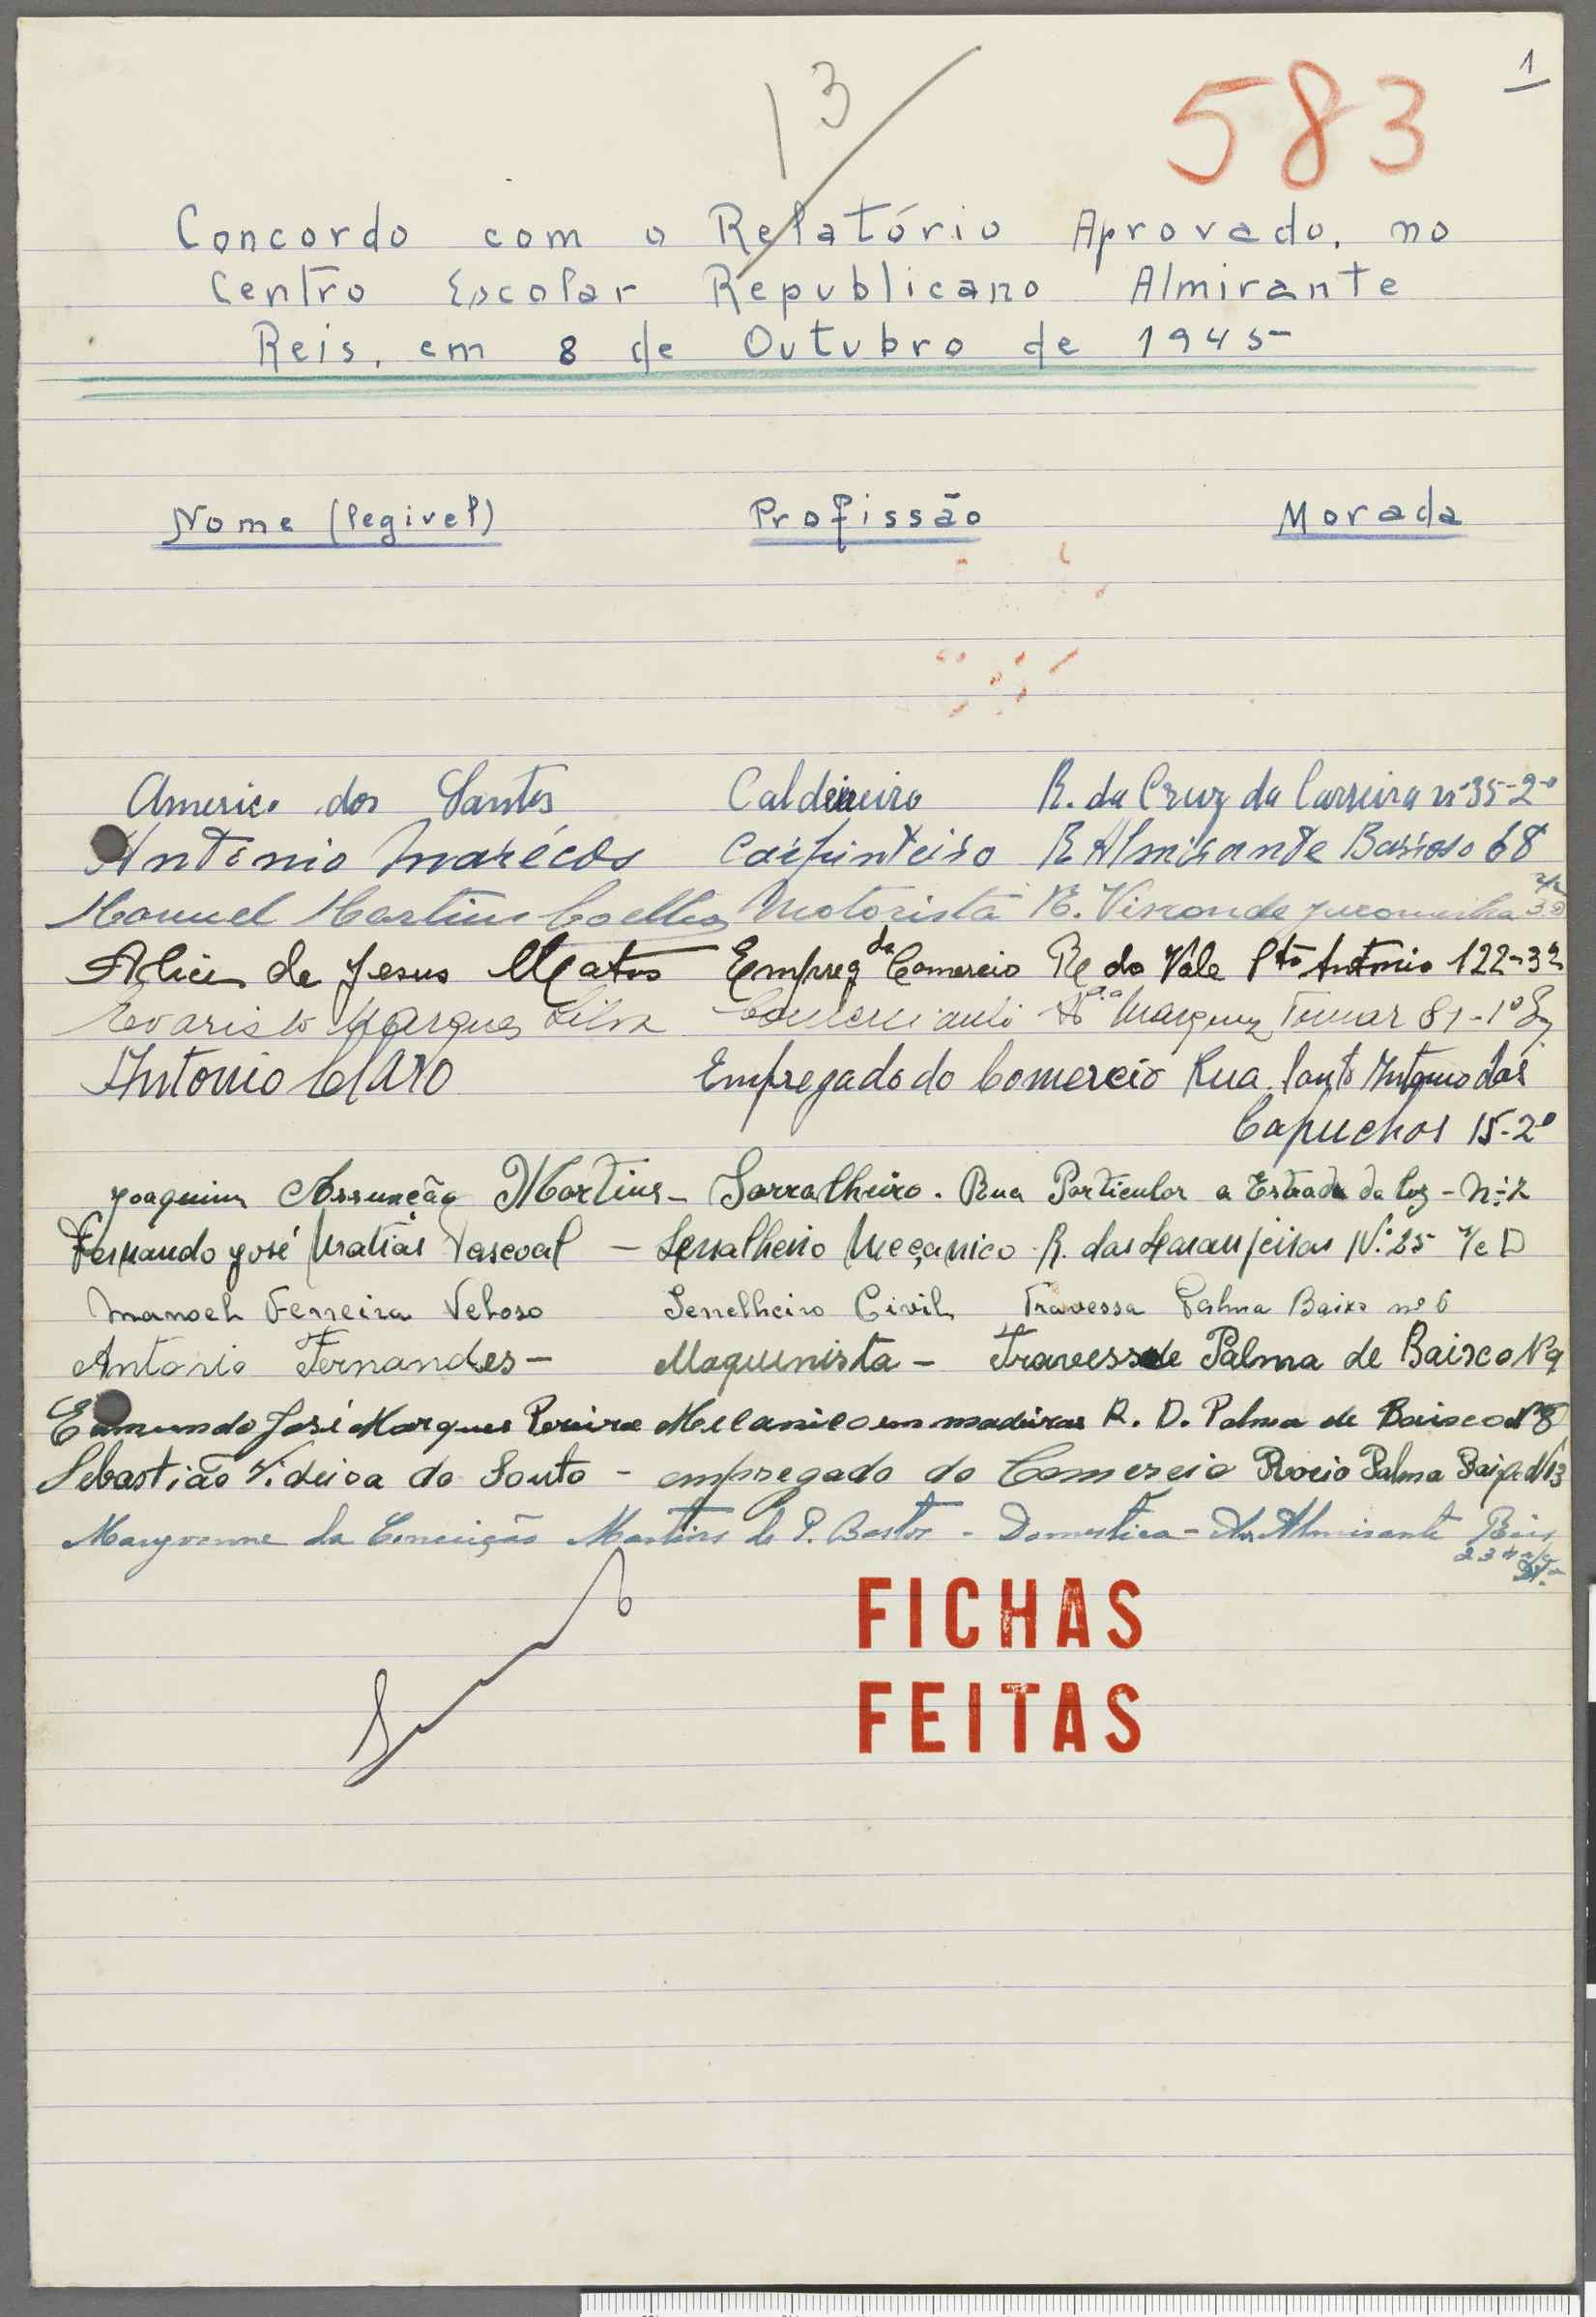 1
13
583
Concordo com o Relatório Aprovado, no
Centro Escolar Republicano Almirante
Reis, em 8 de Outubro de 1945
Nome (legivel) Profissão Morada
Americo dos Santos Caldeireiro R. da Cruz da Carreira nº 35-2º
Antonio Marécos Carpinteiro R Almirante Barroso 68
Manuel Martins Coelho Motorista R. Visconde Juromenha
Alice de Jesus Matos Empreg da Comercio R do Vale Stº Antonio 122-3º
Evaristo Marques Silva Comerciante Marquez Tomar 81-1º
Antonio Claro Empregado do Comercio Rua Santo Antonio dos
Capuchos 15-2º
Joaquim Assunção Martins - Sarralheiro. Rua Particular a Estrada da Luz - Nº 2
Fernando José Matias Pascoal - Serralheiro Mecanico R. das Laranjeiras Nº 25 r/c D
Manoel Ferreira Veloso Serrelheiro Civil Travessa Palma Baixo nº 6
Antonio Fernandes - Maquinista - Travessa de Palma de Baixo Nº 9
Edmundo José Marques Pereira Mecanico em madeiras R. D. Palma de Baixo Nº 8
Sebastião Videira do Souto - empregado do Comercio Rocio Palma Baixo Nº 13
Maryvonne da Conceição Martins de P. Bastos - Domestica - Av. Almirante Reis
FICHAS
FEITAS